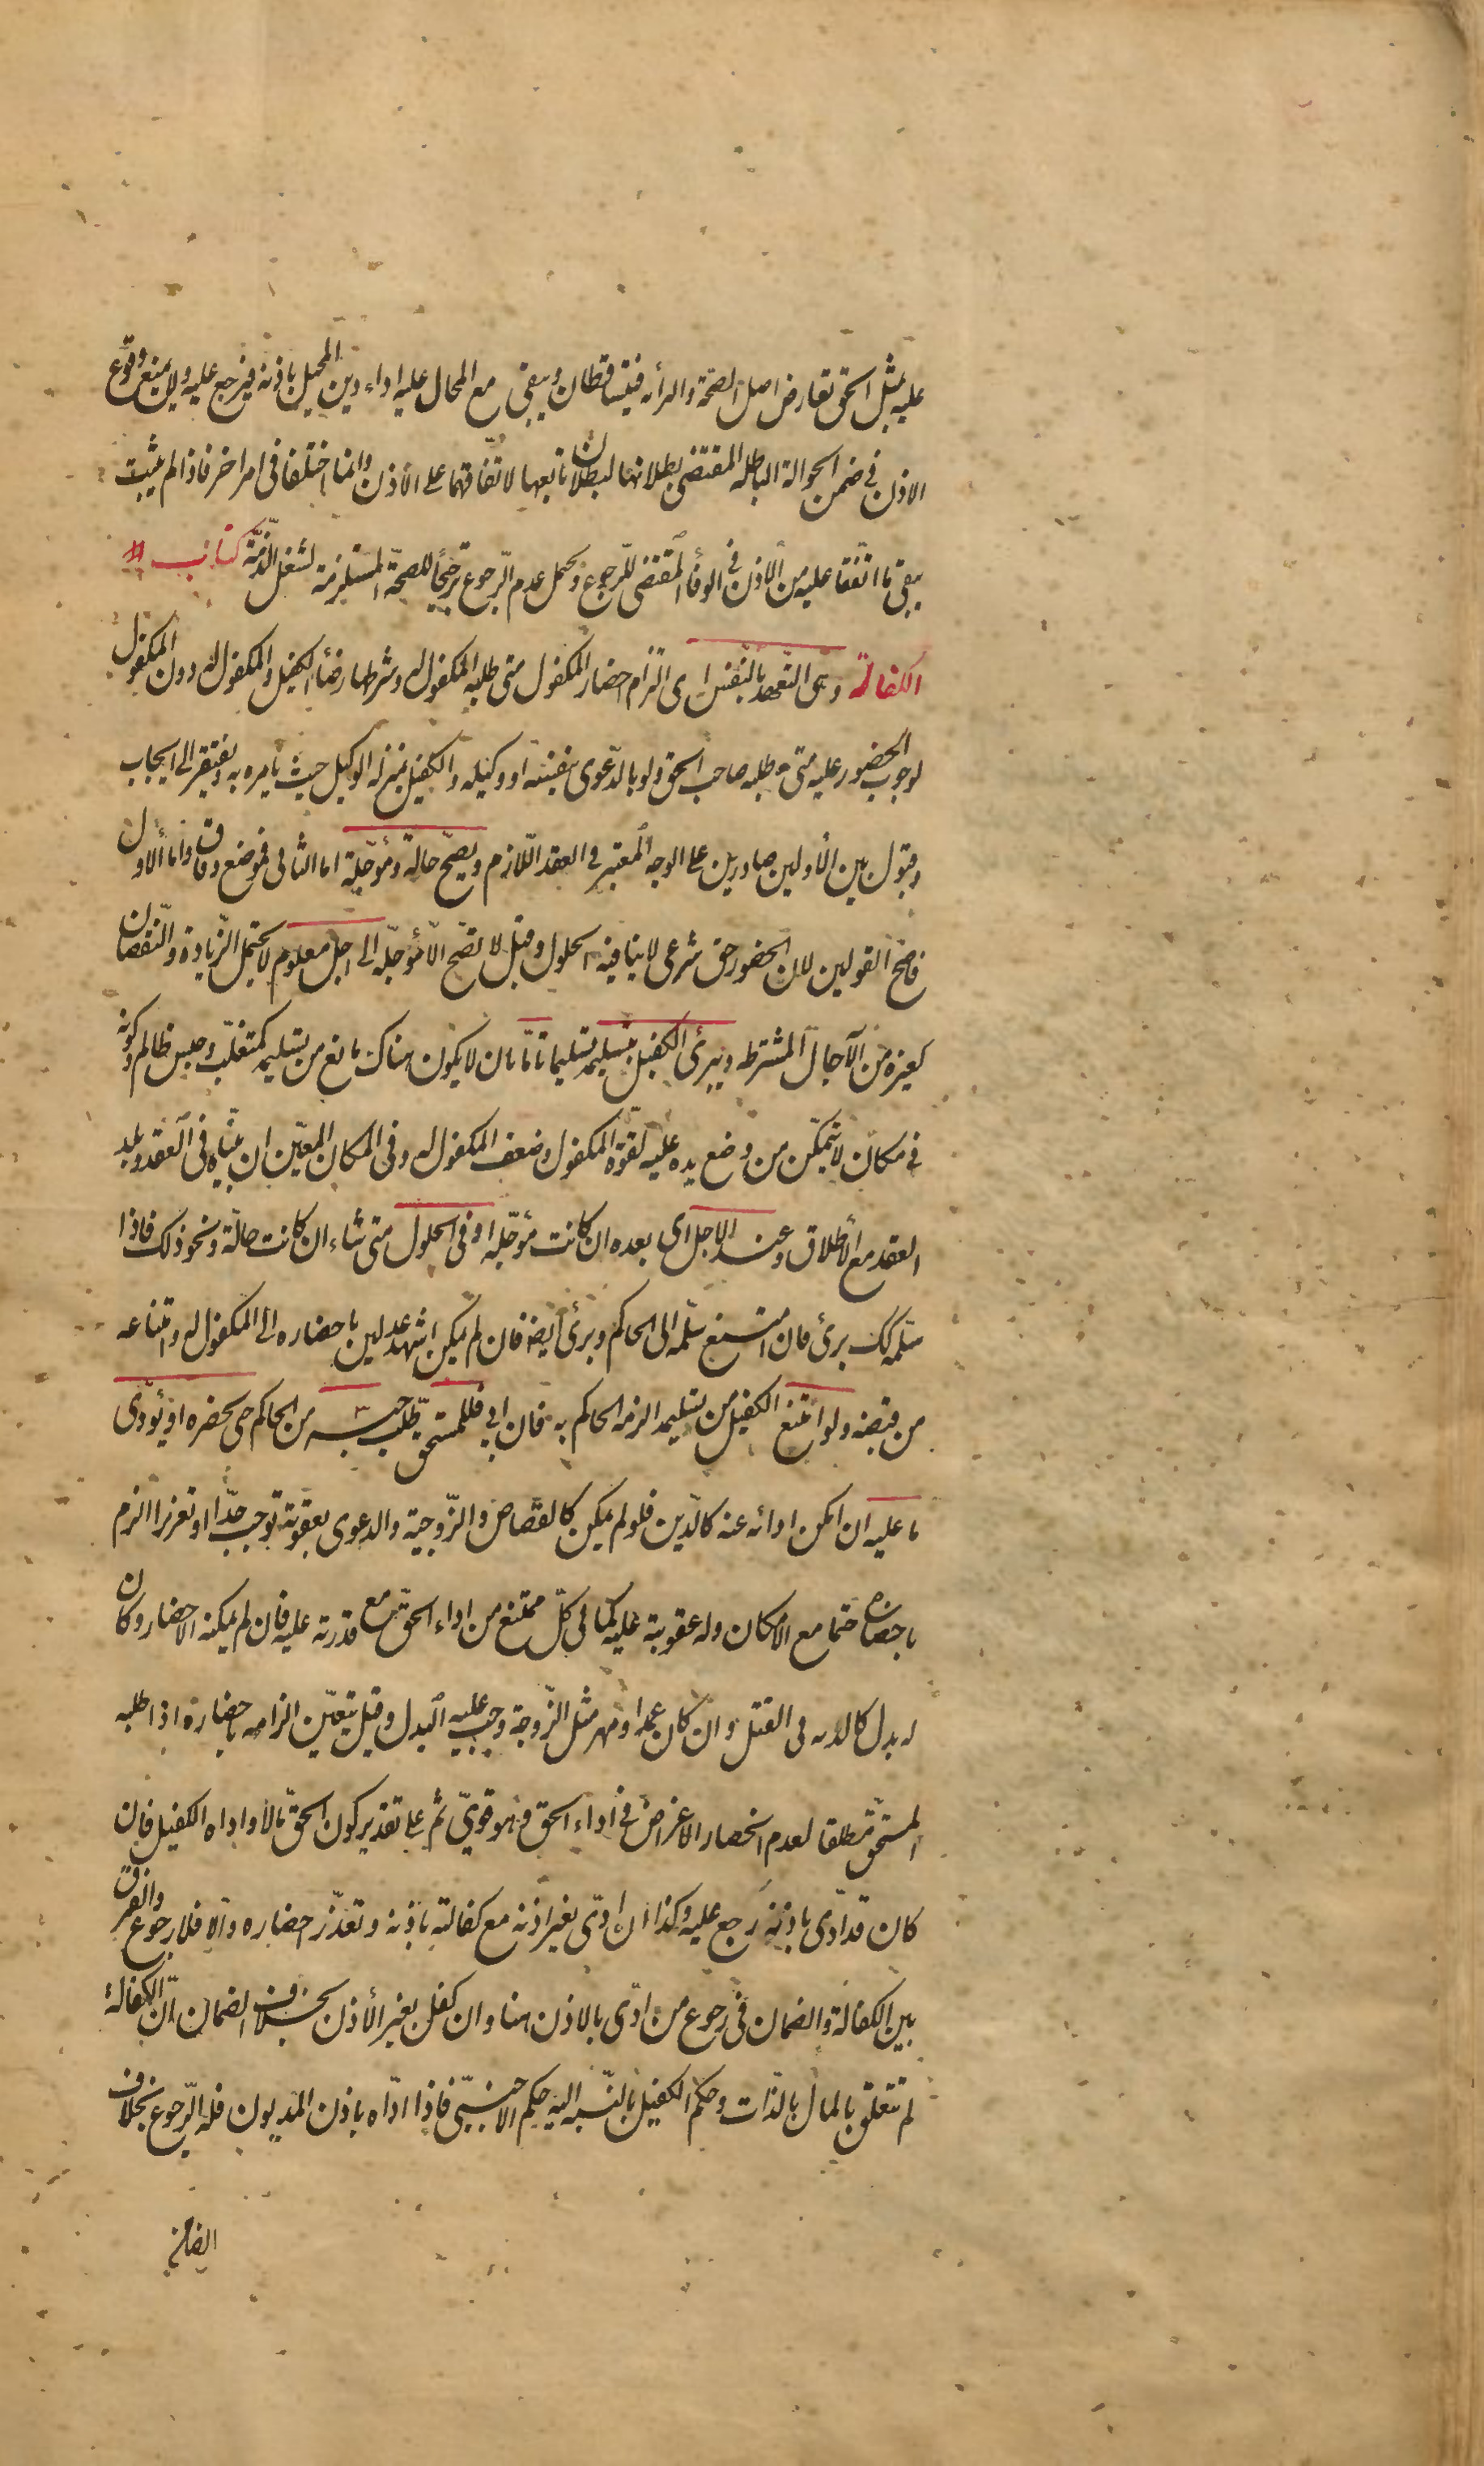 عليه بمثل الحق تعارض اصل الصحة والبرأة فيتساقطان ويبقى مع المحال عليه اداء دين المحيل باذنه فيرجع عليه ولا يمنع وقوع
الاذن في ضمن الحوالة الباطلة المقتضى بطلانها لبطلان تابعها لاتفاقهما على الأذن وانما اختلفا في امر اخر فاذا لم يثبت
يبقى ما اتفقا عليه من الأذن في الوفأ المقتضى للرجوع ويحمل عدم الرجوع ترجيحاً للصحة المستلزمة لشغل الذمة كتاب
الكفالة وهى التعهد بالنفس اى التزام احضار المكفول متى طلبه المكفول له وشرطها رضأ الكفيل والمكفول له دون المكفول
لوجوب الحضور عليه متى طلبه صاحب الحق ولو بالدعوى بنفسه او وكيله والكفيل بمنزلة الوكيل حيث يأمره به ويفتقر الى ايجاب
وقبول بين الأولين صادرين على الوجه المعتبر في العقد اللازم ويصح حالة ومؤجلة اما الثانى فموضع وفاق واما الأول
فاصح القولين لان الحضور حق شرعى لا ينافيه الحلول وقيل لا تصح الا مؤجلة الى اجل معلوم لا يحتمل الزيادة والنقصان
كغيره من الآجال المشترطة ويبرئ الكفيل بتسليمه تسليما تاما بان لا يكون هناك مانع من تسليمه كمتغلب وحبس ظالم وكونه
في مكان لا يتمكن من وضع يده عليه لقوة المكفول وضعف المكفول له وفى المكان المعين ان بيناه فى العقد وبلد
العقد مع الأطلاق وعند الاجل اى بعده ان كانت مؤجلة او فى الحلول متى شاء ان كانت حالة ونحو ذلك فاذا
سلمه كك برئ فان امتنع سلمه الى الحاكم وبرئ أيضا فان لم يكن اشهد عدلين باحضاره الى المكفول له وامتناعه
من قبضه ولو امتنع الكفيل من تسليمه الزمه الحاكم به فان ابى فللمستحق طلب حبسه من الحاكم حتى يحضره او يؤدى
ما عليه ان امكن ادائه عنه كالدين فلو لم يمكن كالقصاص والزوجية والدعوى بعقوبة توجب حدا او تعزيرا الزم
باحضاره حتما مع الامكان وله عقوبته عليه كما في كل ممتنع من اداء الحق مع قدرته عليه فان لم يمكنه الاحضار وكان
له بدل كالدية فى القتل وان كان عمدا او مهر مثل الزوجة وجب عليه البدل وقيل يتعين الزامه باحضاره اذا طلبه
المستحق مطلقا لعدم انحصار الاغراض في اداء الحق وهو قوى ثم على تقدير كون الحق مالا واداه الكفيل فان
كان قد ادى باذنه رجع عليه وكذا ان ادى بغير اذنه مع كفالته باذنه وتعذر احضاره والا فلا رجوع والفرق
بين الكفالة والضمان فى رجوع من ادى بالاذن هنا وان كفل بغير الأذن بخلاف الضمان ان الكفالة
لم تتعلق بالمال بالذات وحكم الكفيل بالنسبة اليه حكم الاجنبى فاذا اداه باذن المديون فله الرجوع بخلاف
الضامن